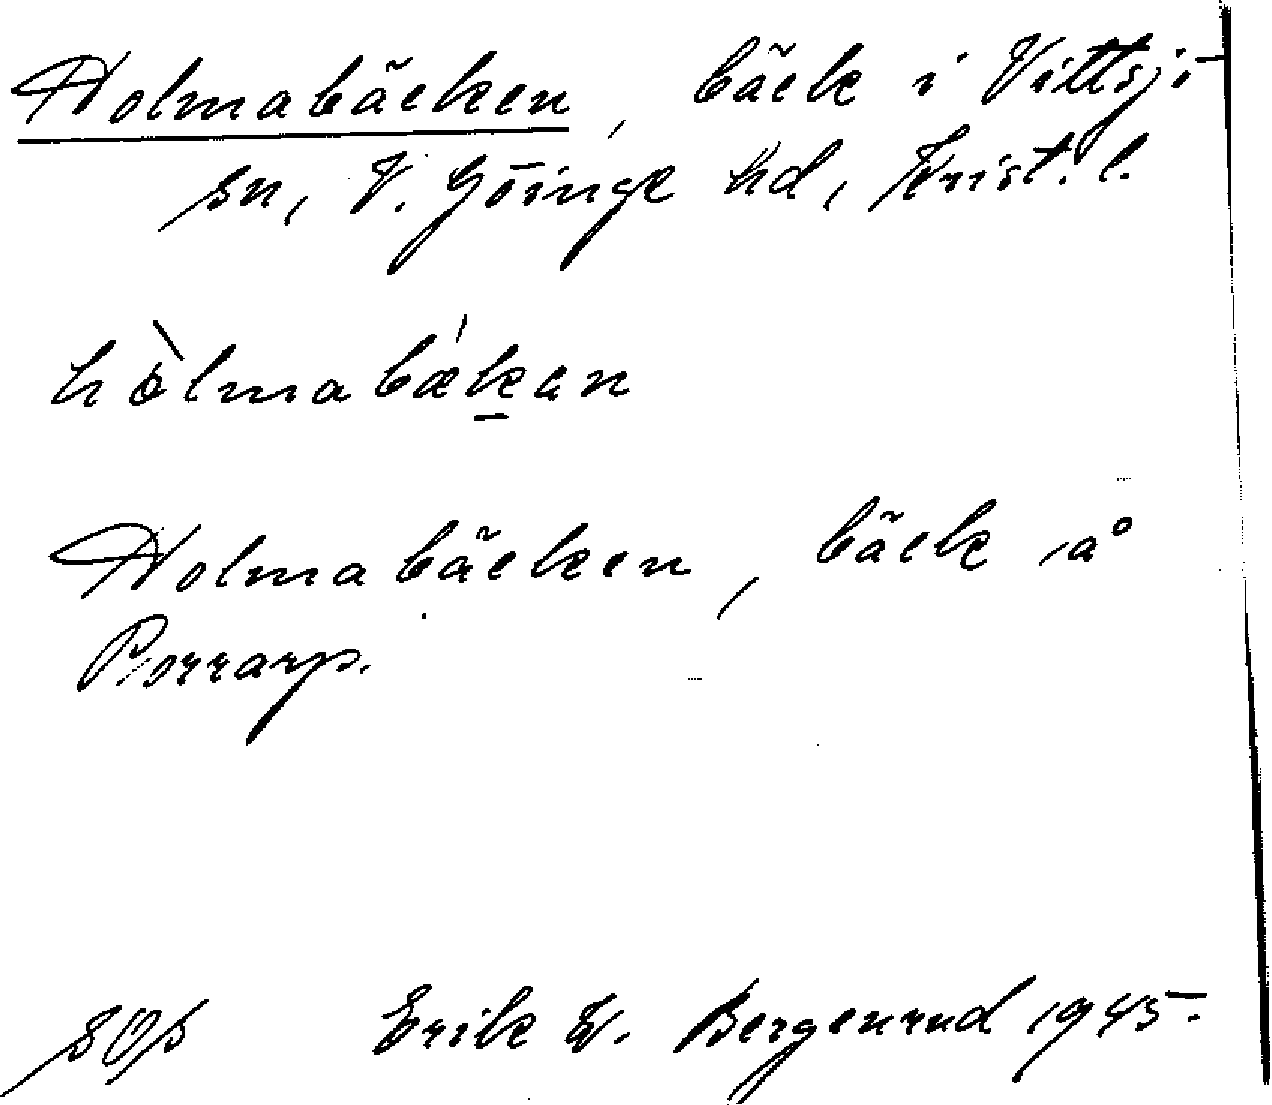 Holmabäcken, bäck i Vittsjö
sn, V. Göinge hd, Krist. l.
hòlmabǽḵan
Holmabäcken, bäck å
Porrarp.
SOS Erik W. Bergenrud 1945.